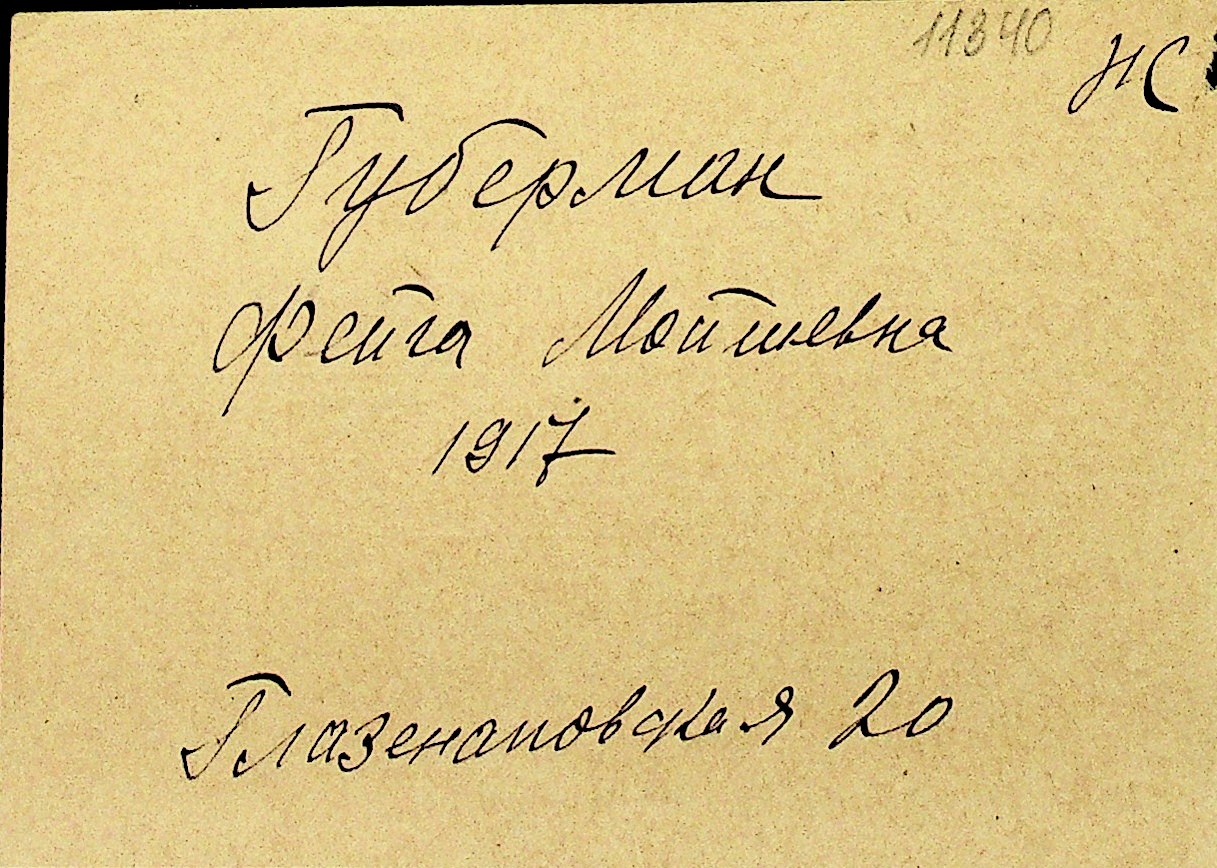 11340
НС
Губерман
Фейга Мойшевна
1917
Глазенаповская 20